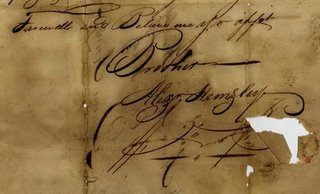 Farewell and Believe me yr affct
Brother
Alexr Hemsley